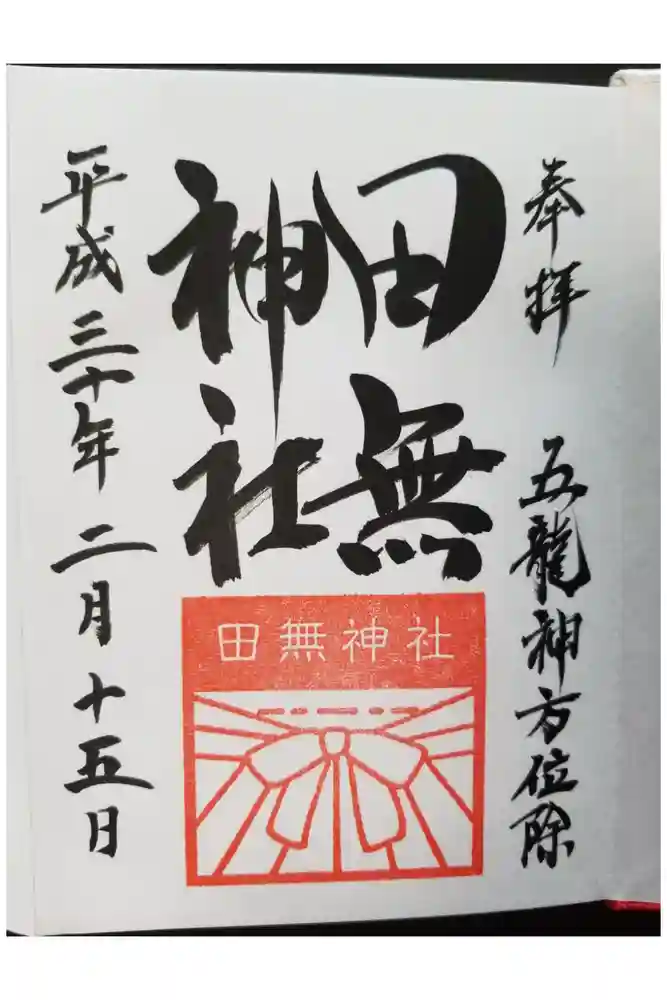 奉拝 五龍神方位除
田無
神社
田無神社
平成三十年二月十五日